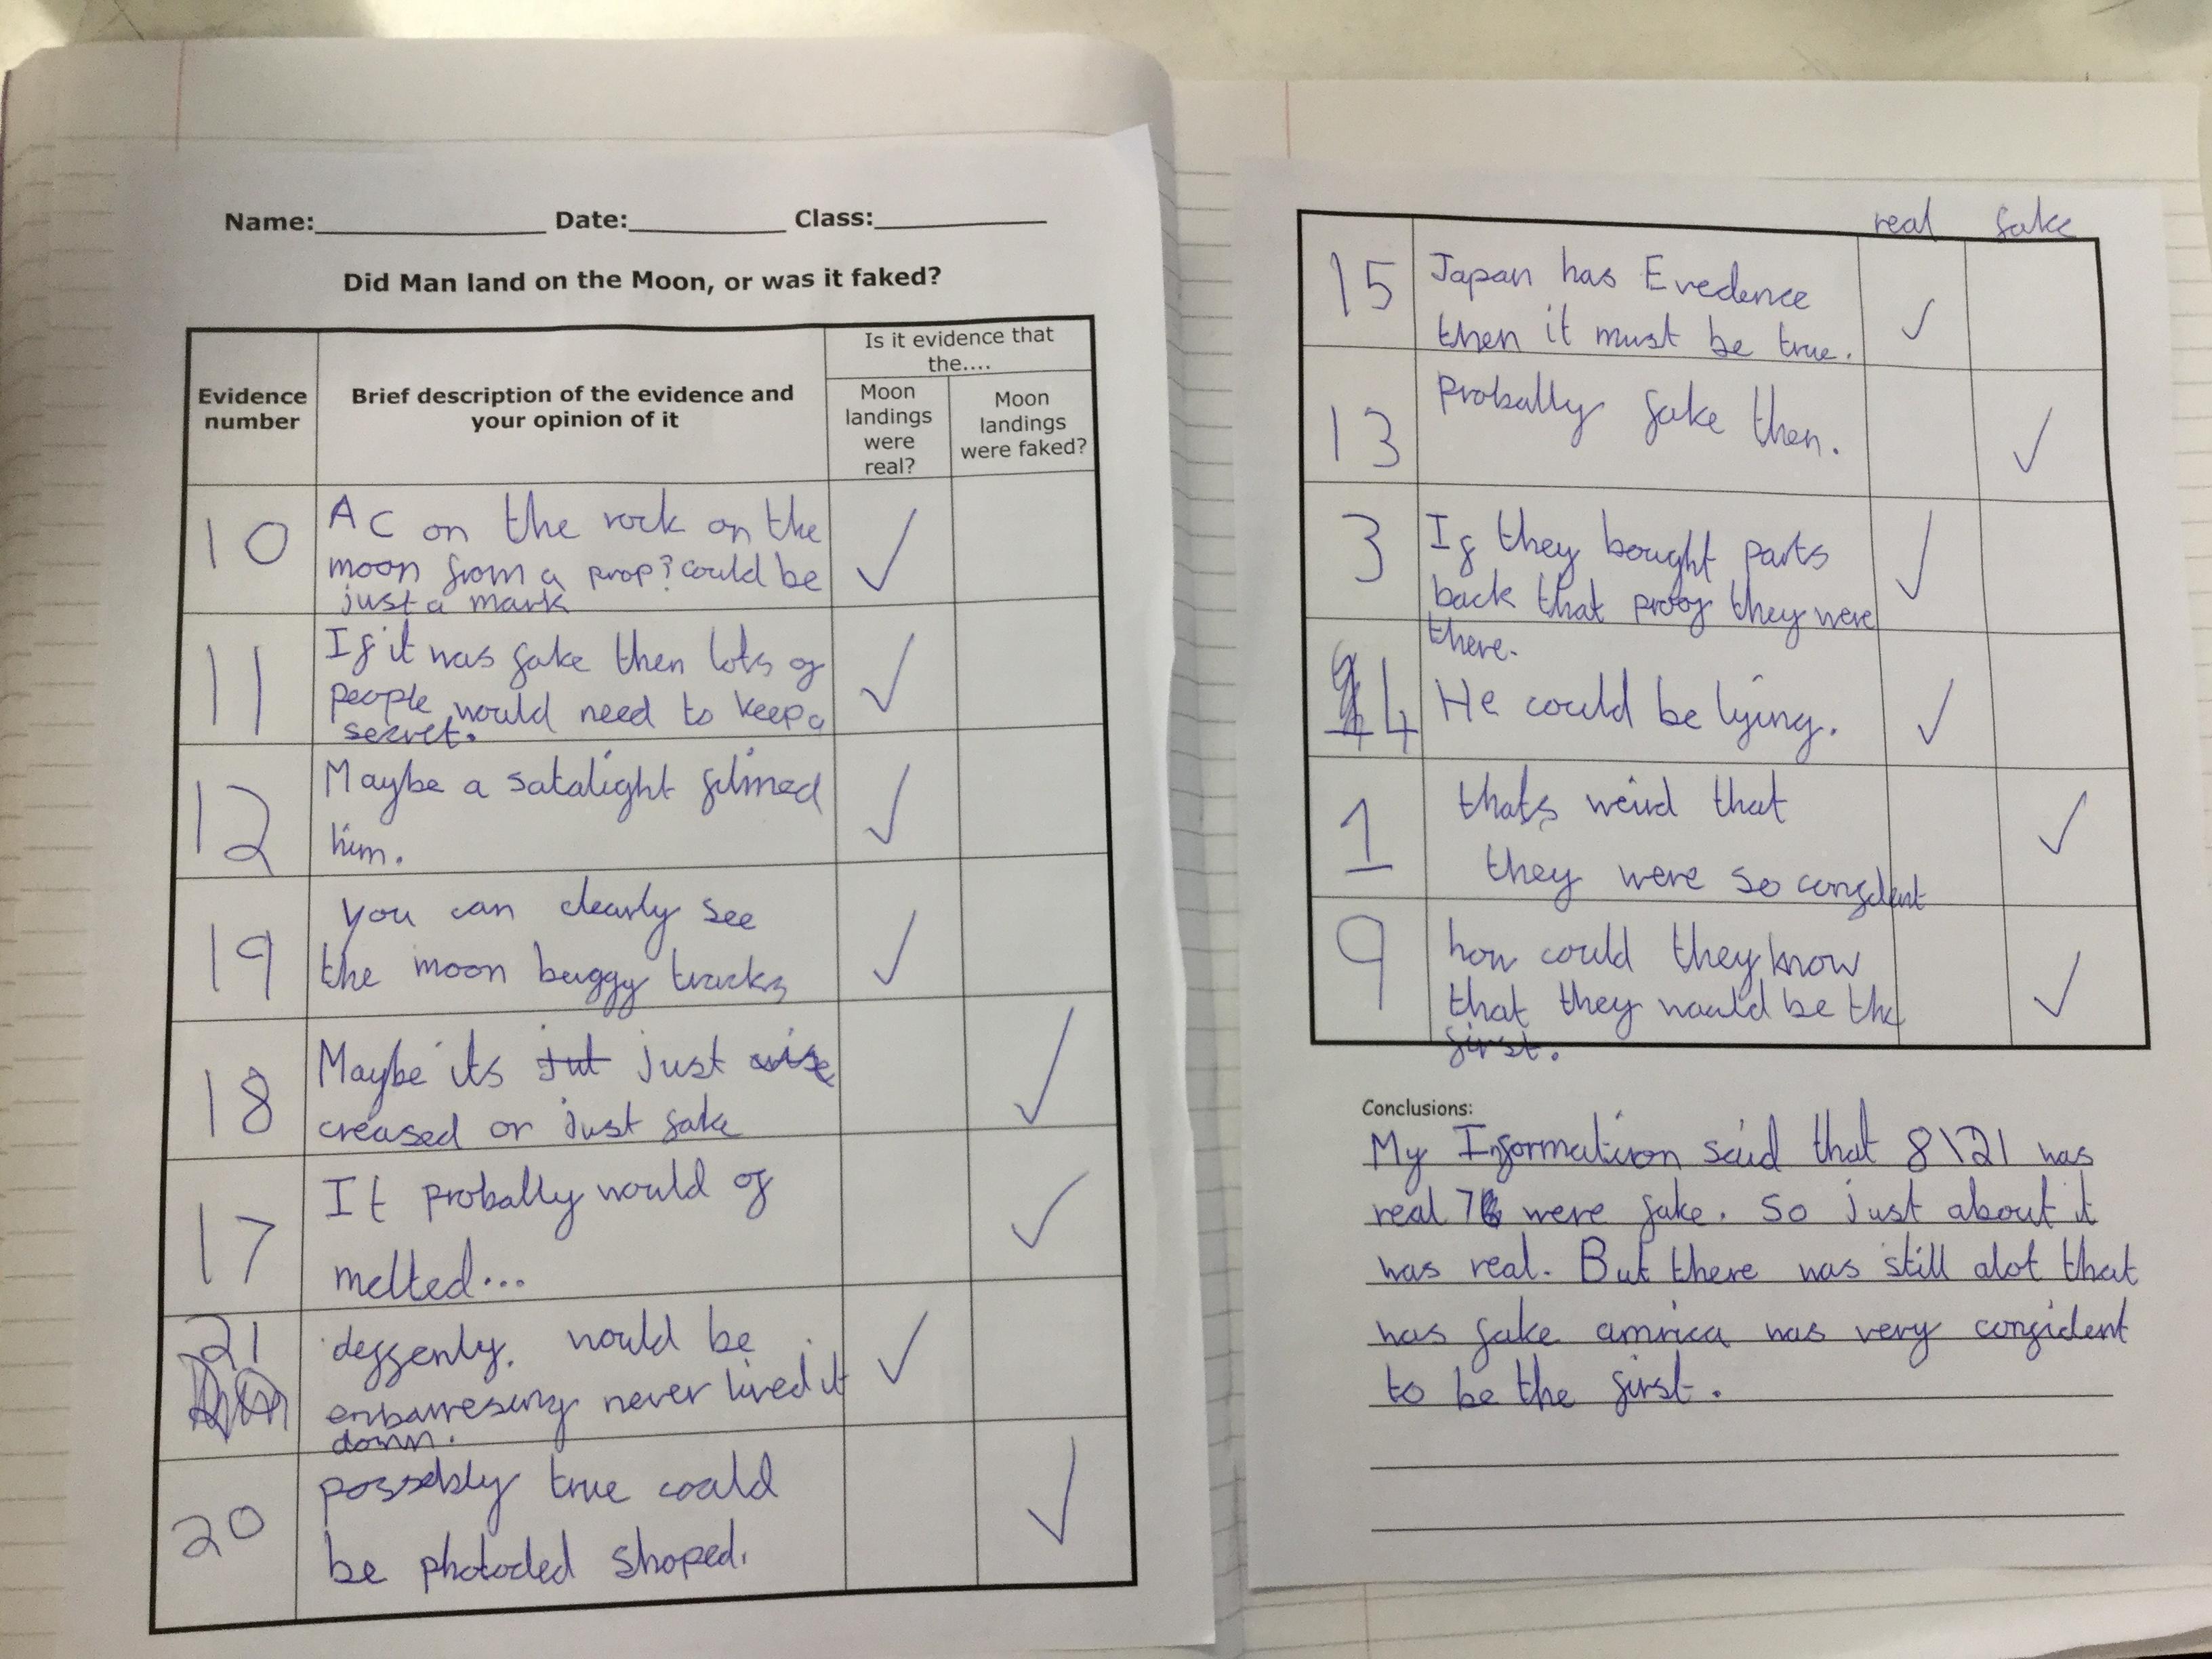 Name: Date: Class:
Did Man land on the Moon, or was it faked?
Evidence number
Brief description of the evidence and your opinion of it
Is it evidence that the....
Moon landings were real?
Moon landings were faked?
10
A C on the rock on the
moon from a prop? could be
just a mark
11
If it was fake then lots of
people would need to keep a
secret.
12
Maybe a satalight filmed
him.
19
you can clearly see
the moon buggy tracks
18
Maybe its just
creased or just fake
17
It probally would of
melted...
21
deffenly. would be
embarresing never lived it
down.
20
possebly true could
be photoded shoped.
real fake
15
Japan has Evedence
then it must be true.
13
Probally fake then.
3
If they bought parts
back that proof they were
there.
14
He could be lying.
1
thats weird that
they were so confident
9
how could they know
that they would be the
first.
Conclusions:
My Information said that 8\21 was
real 7 were fake. So just about it
was real. But there was still alot that
was fake amrica was very confident
to be the first.